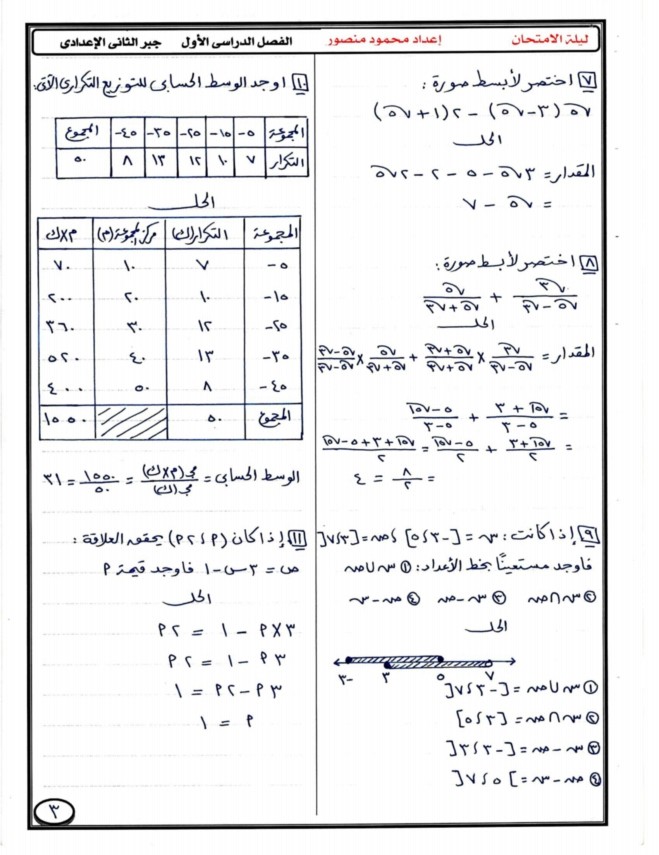 ليلة الامتحان إعداد محمود منصور الفصل الدراسى الأول جبر الثانى الإعدادى
٧ اختصر لأبسط صورة :
√٥ (٣ − √٥) − ٢ (√٥ + ١)
الحل
المقدار = ٣√٥ − ٥ − ٢√٥ − ٢
= √٥ − ٧
٨ اختصر لأبسط صورة :
√٣ / (√٥ − √٣) + √٥ / (√٥ + √٣)
الحل
المقدار = √٣ / (√٥ − √٣) × (√٥ + √٣) / (√٥ + √٣) + √٥ / (√٥ + √٣) × (√٥ − √٣) / (√٥ − √٣)
= (√١٥ + ٣) / (٥ − ٣) + (٥ − √١٥) / (٥ − ٣)
= (√١٥ + ٣) / ٢ + (٥ − √١٥) / ٢ = (√١٥ + ٣ + ٥ − √١٥) / ٢
= ٨ / ٢ = ٤
٩ إذا كانت : س = [−٣ ، ٥] ، ص = [٣ ، ٧[
فأوجد مستعينًا بخط الأعداد : ① س ∪ ص
② س ∩ ص ③ س − ص ④ ص − س
الحل
−٣ ٣ ٥ ٧
① س ∪ ص = [−٣ ، ٧[
② س ∩ ص = [٣ ، ٥]
③ س − ص = [−٣ ، ٣[
④ ص − س = ]٥ ، ٧[
١٠ اوجد الوسط الحسابى للتوزيع التكرارى الآتى :
المجموعة ٥− ١٥− ٢٥− ٣٥− ٤٥− المجموع
التكرار ٧ ١٠ ١٢ ١٣ ٨ ٥٠
الحل
المجموعة التكرار (ك) مركز المجموعة (م) م × ك
٥− ٧ ١٠ ٧٠
١٥− ١٠ ٢٠ ٢٠٠
٢٥− ١٢ ٣٠ ٣٦٠
٣٥− ١٣ ٤٠ ٥٢٠
٤٥− ٨ ٥٠ ٤٠٠
المجموع ٥٠ ١٥٥٠
الوسط الحسابى = مجـ (م × ك) / مجـ (ك) = ١٥٥٠ / ٥٠ = ٣١
١١ إذا كان (٢ ، ٢٢) يحقق العلاقة :
ص = ٣س − ١ فأوجد قيمة م
الحل
٣ × م − ١ = ٢م
٣م − ١ = ٢م
٣م − ٢م = ١
م = ١
٣